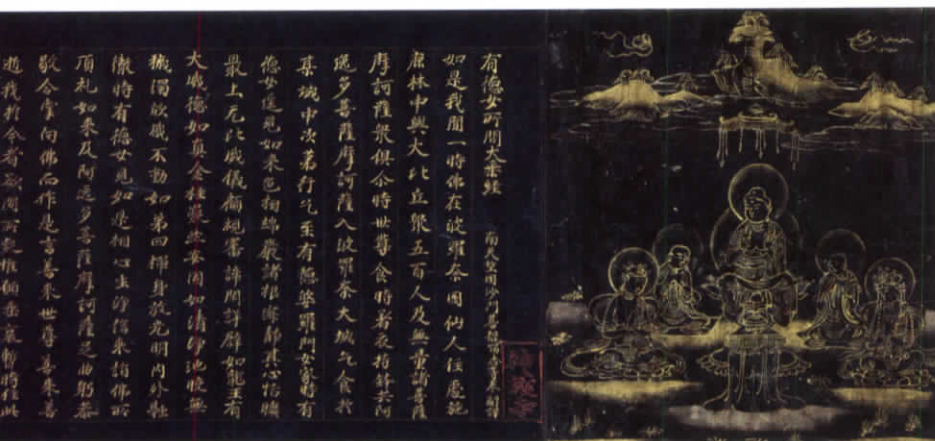 有德女所問大乘經 南天竺國沙門菩提流志奉詔譯
如是我聞一時佛在波羅奈國仙人住處施
鹿林中與大比丘眾五百人及無量諸菩薩
摩訶薩眾俱尒時世尊食時著衣持鉢共阿
逸多菩薩摩訶薩入波羅奈大城乞食於
其城中次第行乞至有德婆羅門女有
德女遥見如来色相端嚴諸根寂靜其心恬憺
最上无比威儀顧視審諦閑詳如龍王有
大威德如真金柱安如清淨池無
穢濁不動如弟四禪身放光明内外融
徹時有德女見如是相心生淨信来詣佛所
頂礼如来及阿逸多菩薩摩訶薩足曲躬恭
敬合掌向佛而作是言善来世尊善来善
逝我於今者聞惟垂哀暫時住此
神護寺